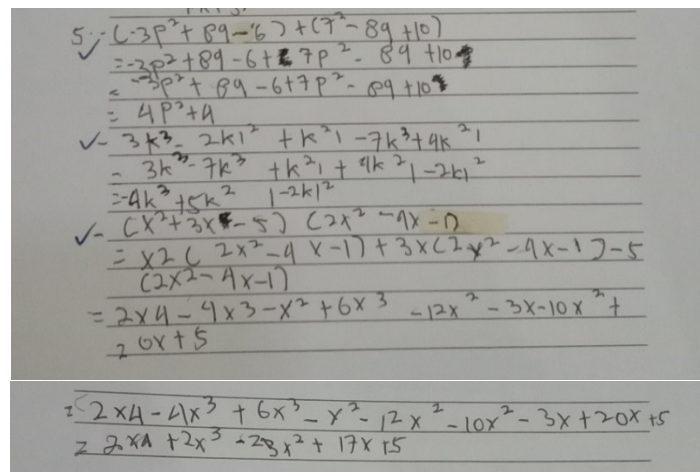 5.- (-3p²+ 8q-6) + (7²- 8q +10)
=-3p²+8q-6+7p²- 8q +10
= -3p²+ 8q -6+7p²- 8q +10
= 4p²+4
- 3k³- 2kl² +k²l -7k³+4k²l
- 3k³-7k³ +k²l + 4k²l-2kl²
=-4k³+5k² l-2kl²
- (x²+3x-5) (2x²-4x-1)
= x2 ( 2x²-4x-1)+3x(2x²-4x-1)-5
(2x²-4x-1)
= 2x4-4x3-x²+6x³ -12x²-3x-10x²+
20x+5
= 2x4-4x³+6x³-x²-12x²-10x²-3x+20x+5
= 2x4+2x³-23x²+17x+5